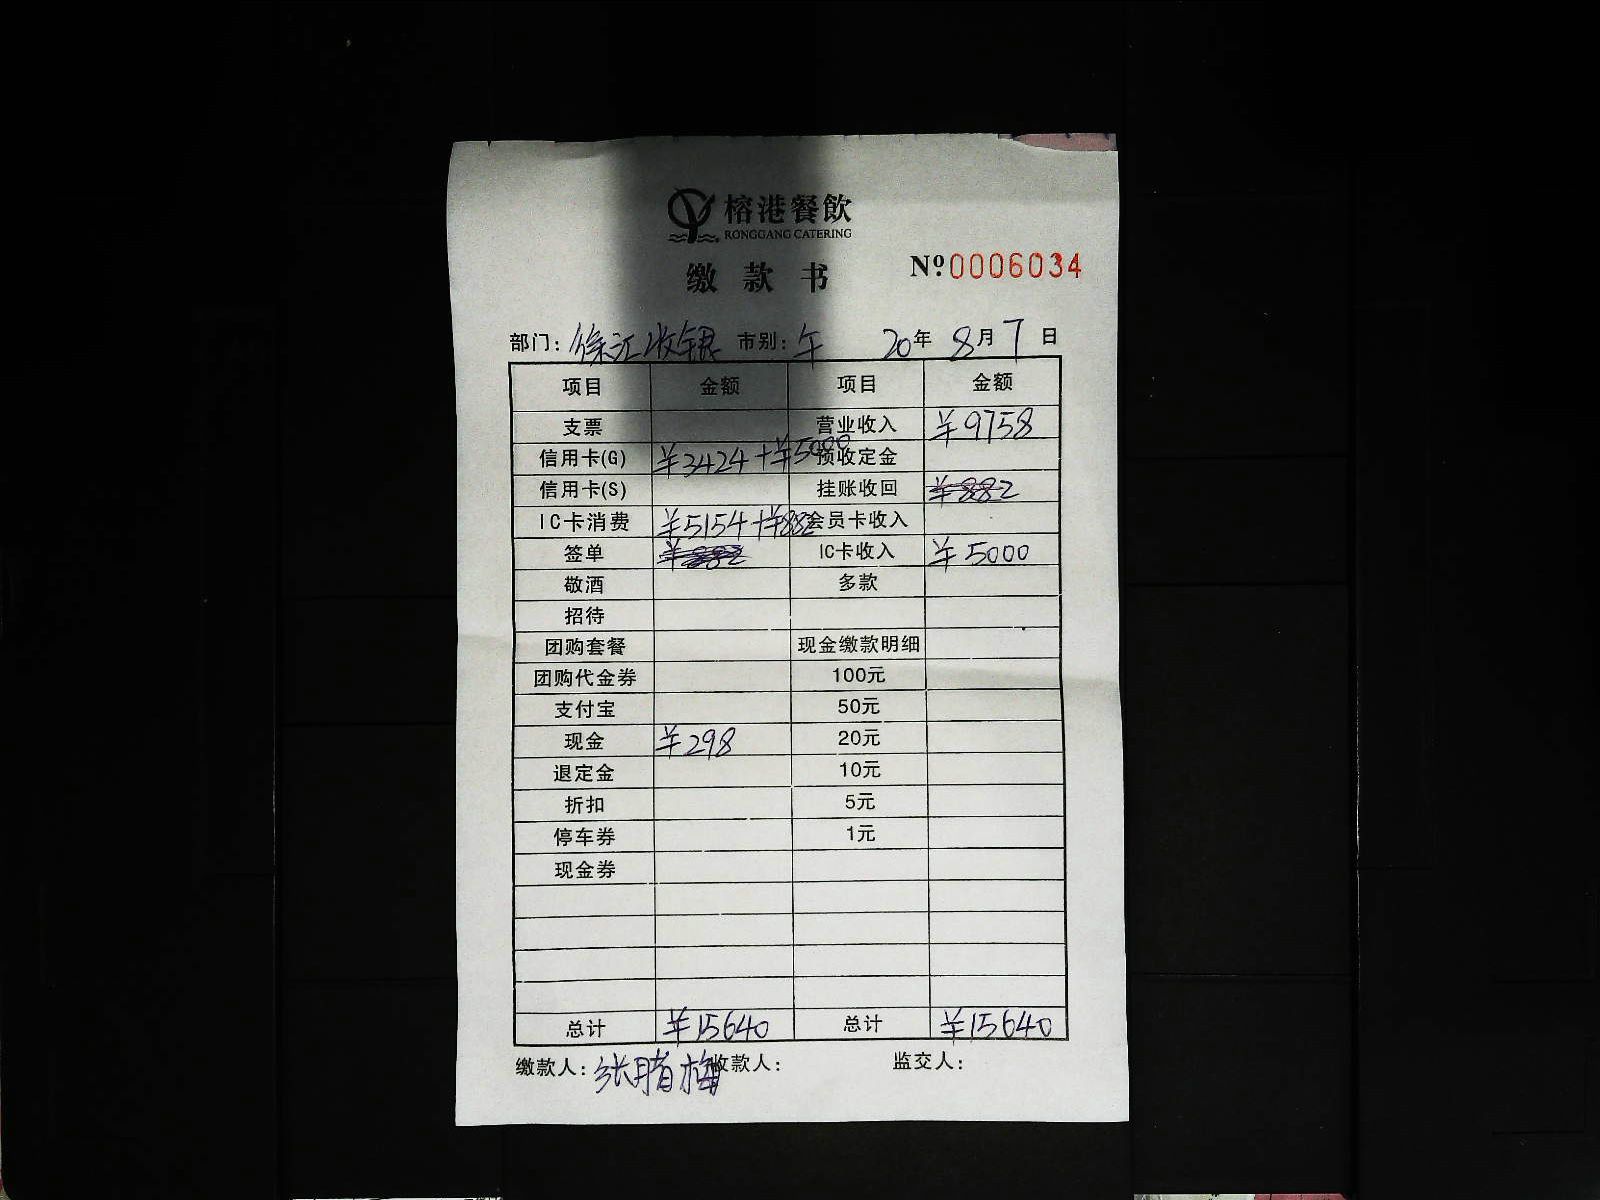 榕港餐飲
RONGGANG CATERING
缴款书 Nº 0006034
部门: 徐汇收银 市别: 午 20年 8月 7日
项目 金额 项目 金额
支票 营业收入 ¥9758
信用卡(G) ¥3424+¥5000 预收定金
信用卡(S) 挂账收回 ¥882
IC卡消费 ¥5154+¥882 会员卡收入
签单 ¥882 IC卡收入 ¥5000
敬酒 多款
招待
团购套餐 现金缴款明细
团购代金券 100元
支付宝 50元
现金 ¥298 20元
退定金 10元
折扣 5元
停车券 1元
现金券
总计 ¥15640 总计 ¥15640
缴款人: 张 梅 收款人: 监交人: